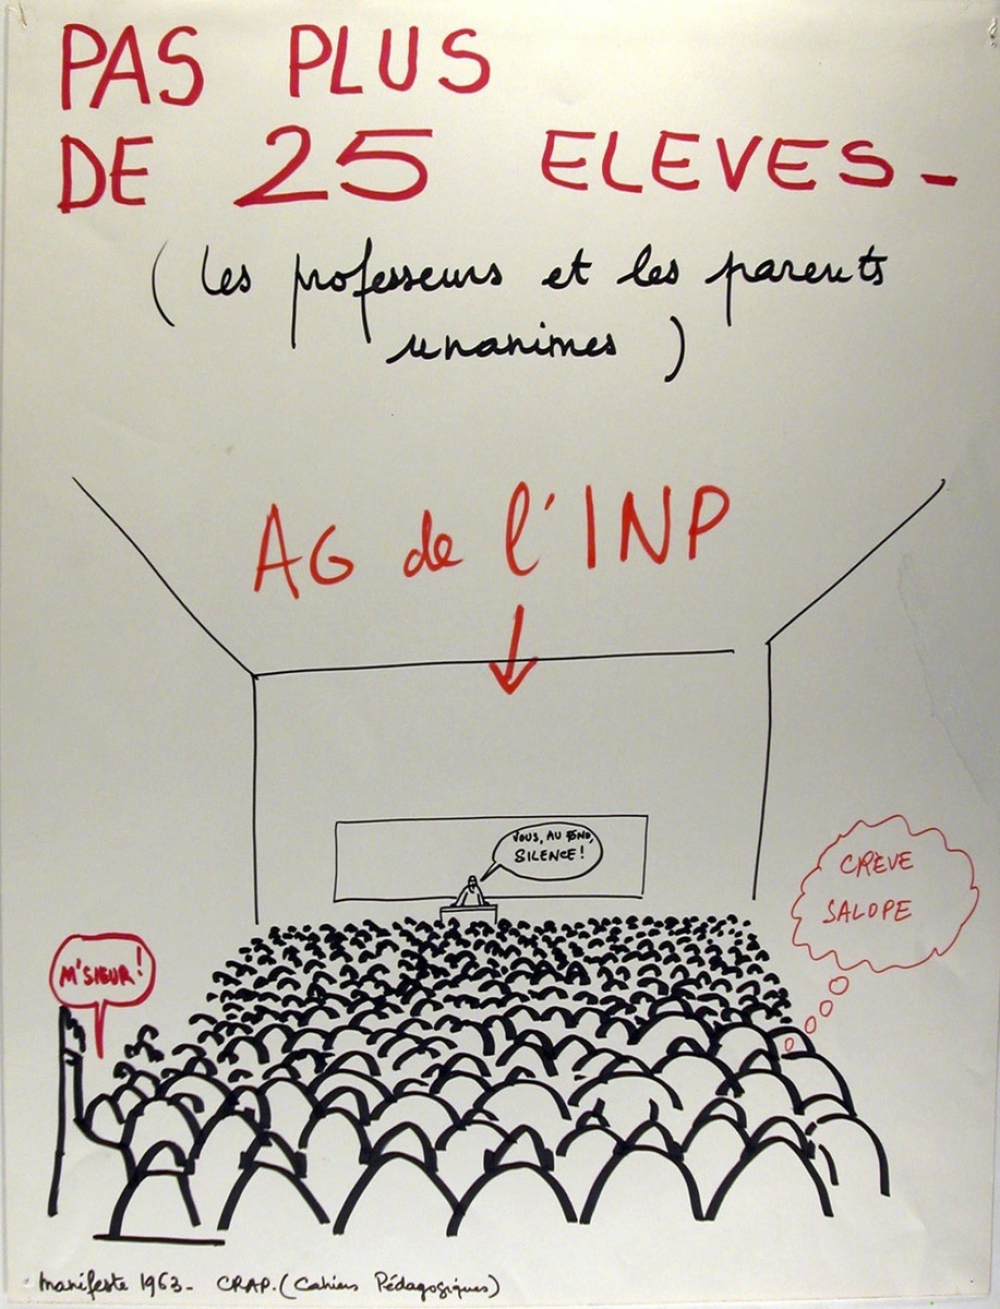 PAS PLUS
DE 25 ELEVES_
(les professeurs et les parents
unanimes)
AG de l'INP
VOUS, AU FOND,
SILENCE!
CRÈVE
SALOPE
M'SIEUR!
Manifeste 1963_ CRAP. (Cahiers Pédagogiques)